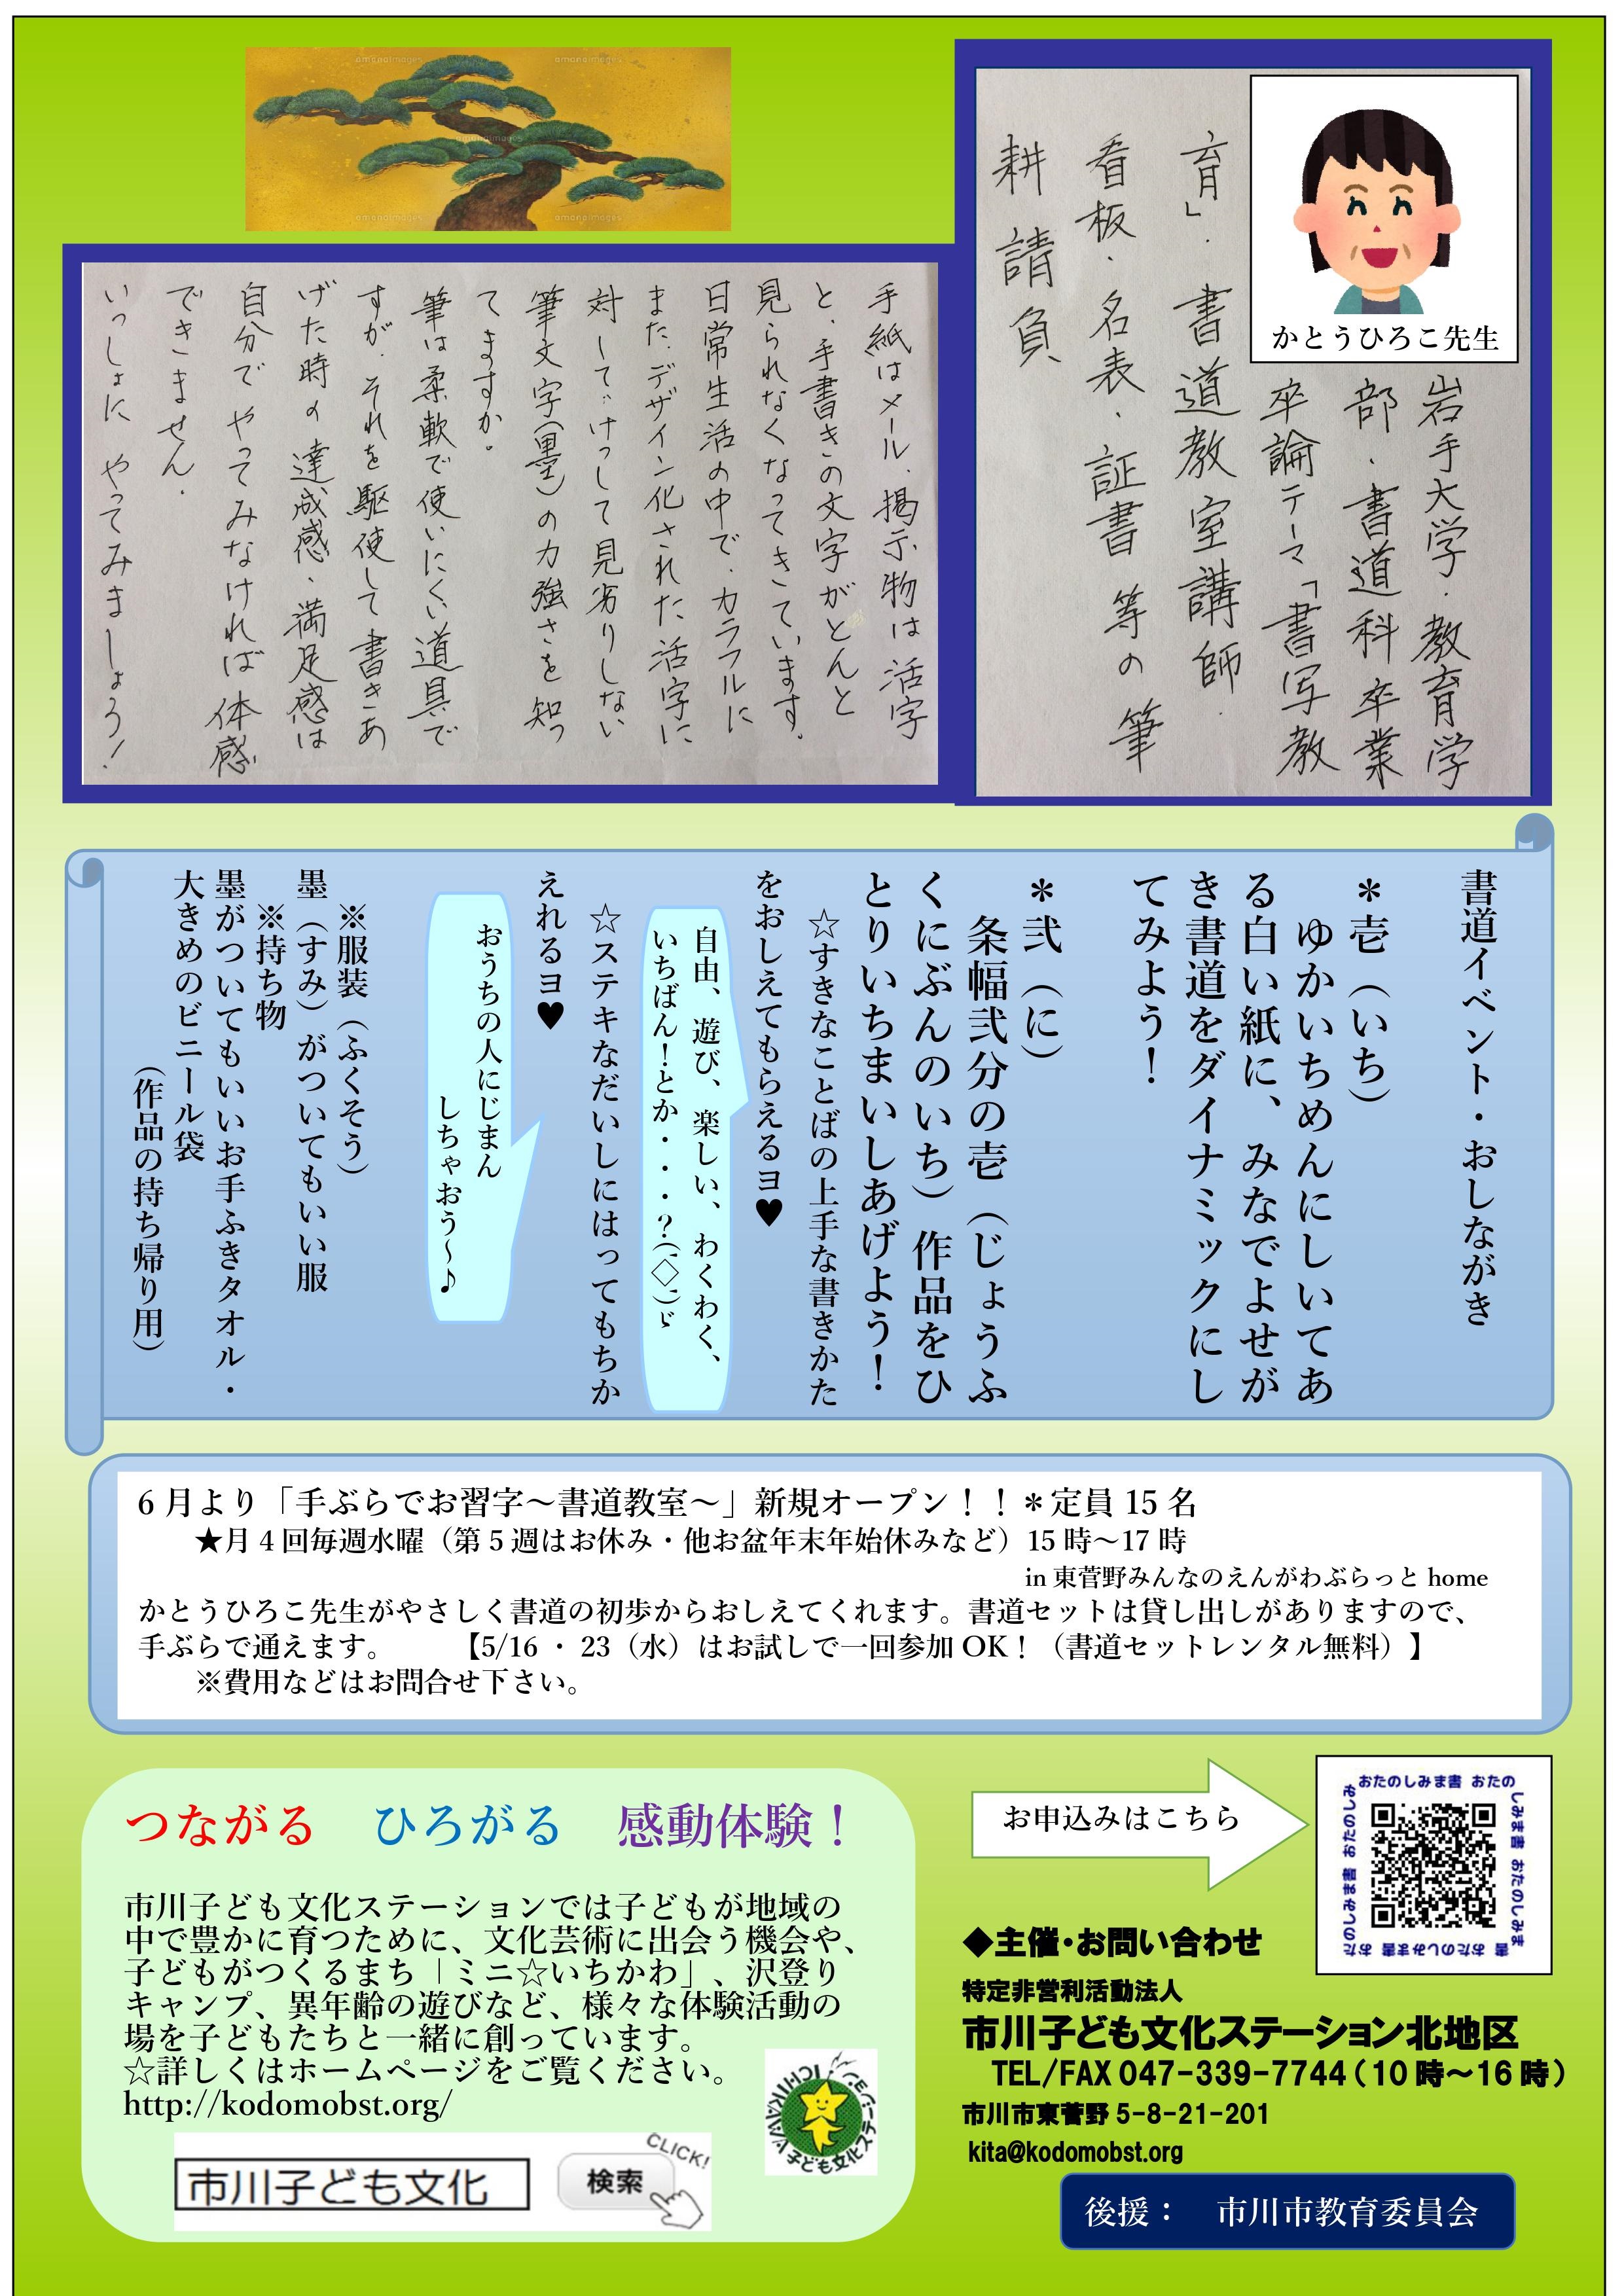 amanaimages
amanaimages
amanaimages
amanaimages
amanaimages
かとうひろこ先生
岩手大学・教育学
部・書道科卒業
卒論テーマ「書写教
育」.
書道教室講師.
看板・名表・証書 等の筆
耕請負
手紙はメール、掲示物は活字
と、手書きの文字がとんと
見られなくなってきています。
日常生活の中で、カラフルに
また、デザイン化された活字に
対して、けっして見劣りしない
筆文字(墨)の力強さを知っ
てますか。
筆は柔軟で使いにくい道具で
すが、それを駆使して書きあ
げた時の達成感、満足感は
自分でやってみなければ体感
できません.
いっしょに やってみましょう!
書道イベント・おしながき
＊壱（いち）
ゆかいちめんにしいてあ
る白い紙に、みなでよせが
き書道をダイナミックにし
てみよう！
＊弐（に）
条幅弐分の壱（じょうふ
くにぶんのいち）作品をひ
とりいちまいしあげよう！
☆すきなことばの上手な書きかた
をおしえてもらえるヨ♥
自由、遊び、楽しい、わくわく、
いちばん！とか・・・？(;◇;)ゞ
☆ステキなだいしにはってもちか
えれるヨ♥
おうちの人にじまん
しちゃおう～♪
※服装（ふくそう）
墨（すみ）がついてもいい服
※持ち物
墨がついてもいいお手ふきタオル・
大きめのビニール袋
（作品の持ち帰り用）
6月より「手ぶらでお習字～書道教室～」新規オープン！！＊定員15名
★月4回毎週水曜（第5週はお休み・他お盆年末年始休みなど）15時～17時
in 東菅野みんなのえんがわぷらっとhome
かとうひろこ先生がやさしく書道の初歩からおしえてくれます。書道セットは貸し出しがありますので、
手ぶらで通えます。　【5/16・23（水）はお試しで一回参加OK！（書道セットレンタル無料）】
※費用などはお問合せ下さい。
つながる　ひろがる　感動体験！
市川子ども文化ステーションでは子どもが地域の
中で豊かに育つために、文化芸術に出会う機会や、
子どもがつくるまち「ミニ☆いちかわ」、沢登り
キャンプ、異年齢の遊びなど、様々な体験活動の
場を子どもたちと一緒に創っています。
☆詳しくはホームページをご覧ください。
http://kodomobst.org/
ICHIKAWA 子ども文化ステーション
市川子ども文化
検索
CLICK!
お申込みはこちら
おたのしみま書 おたの
しみま書 おたのしみま
書 おたのしみま書 おた
のしみま書 おたのしみ
◆主催・お問い合わせ
特定非営利活動法人
市川子ども文化ステーション北地区
TEL/FAX 047-339-7744（10時～16時）
市川市東菅野5-8-21-201
kita@kodomobst.org
後援：　市川市教育委員会